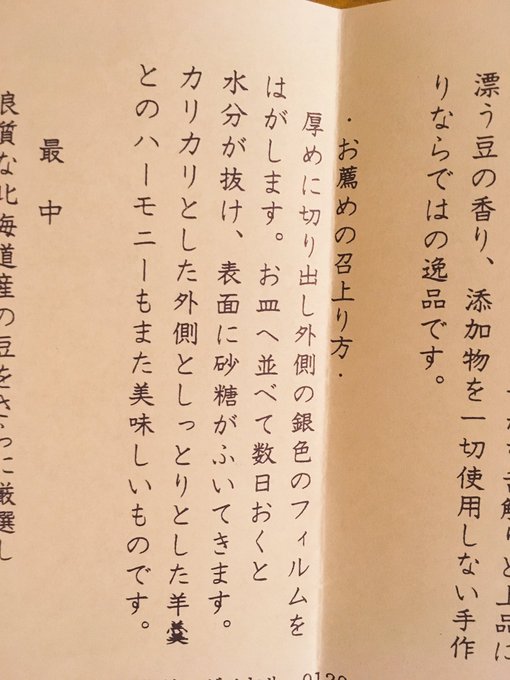 上品に
漂う豆の香り、添加物を一切使用しない手作
りならではの逸品です。
・お薦めの召上り方・
厚めに切り出し外側の銀色のフィルムを
はがします。お皿へ並べて数日おくと
水分が抜け、表面に砂糖がふいてきます。
カリカリとした外側としっとりとした羊羹
とのハーモニーもまた美味しいものです。
最中
良質な北海道産の豆をさらに厳選し
0120